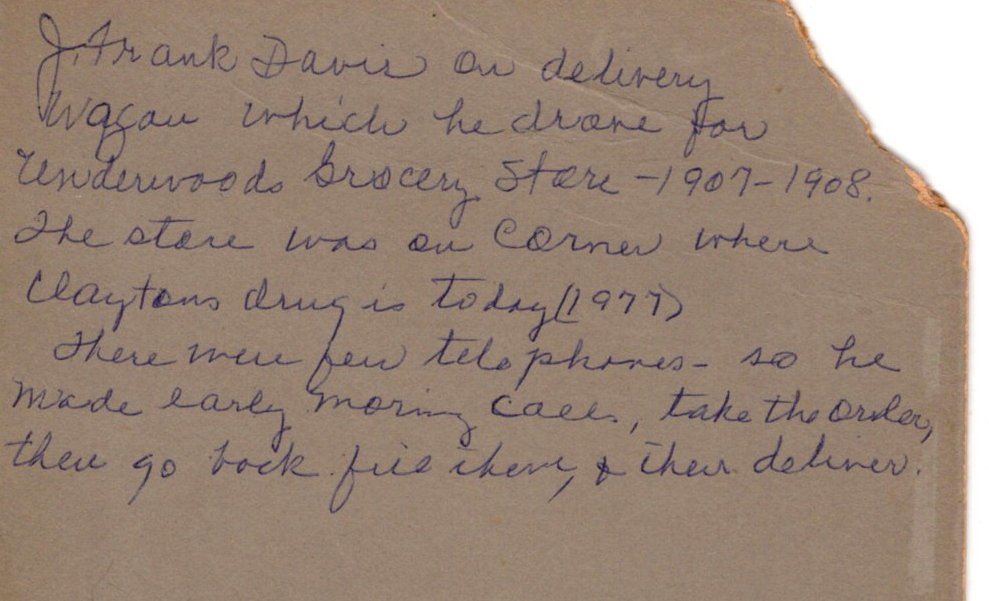 J. Frank Davis on delivery
wagon which he drove for
Underwoods Grocery Store - 1907-1908.
The store was on Corner where
Claytons drug is today (1977)
There were few telephones - so he
made early morning calls, take the order,
then go back fill them, & then deliver.